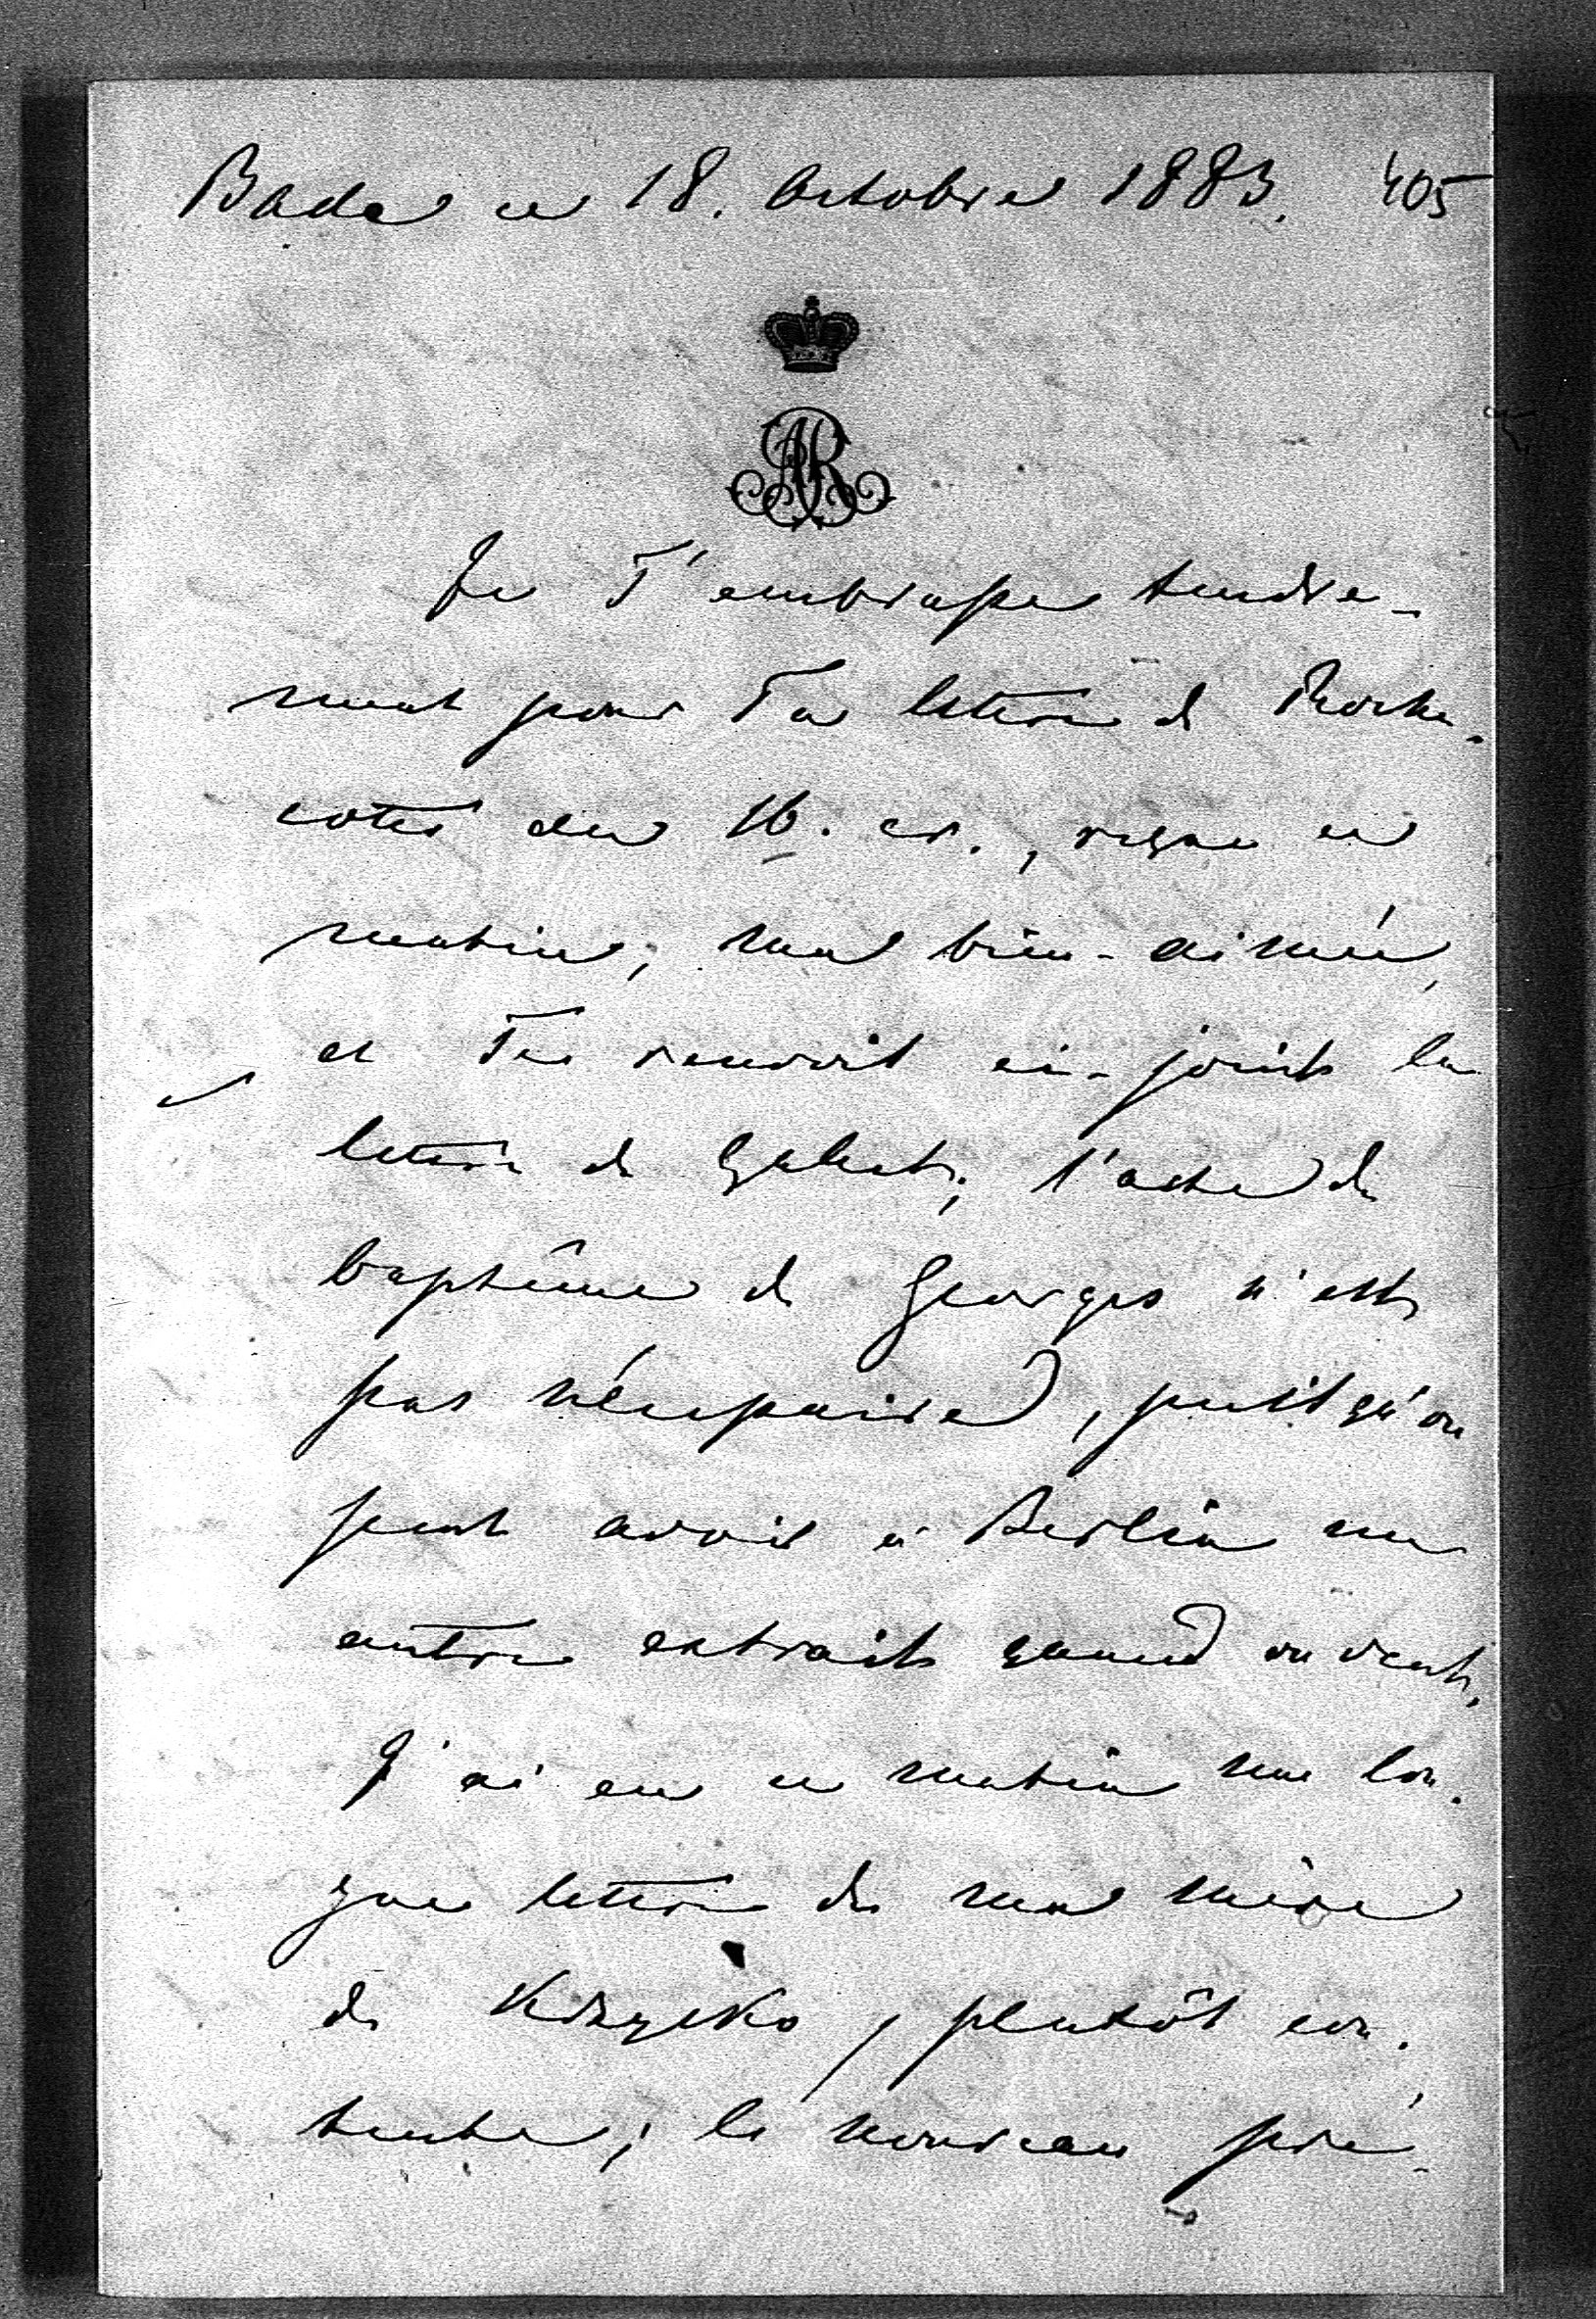 Bade ce 18. Octobre 1883. 405
AR
Je T'embrasse tendre-
ment pour Ta lettre de Roche-
cotte du 16. cr., reçue ce
matin, ma bien-aimée,
et Te renvoie ci-joint la
lettre de ; l'acte de
baptême de Georges n'est
pas nécessaire, puisqu'on
peut avoir à Berlin un
autre extrait quand on veut.
J'ai eu ce matin une lon-
gue lettre de ma mère
de , plutôt con-
tente; le nouveau pré-